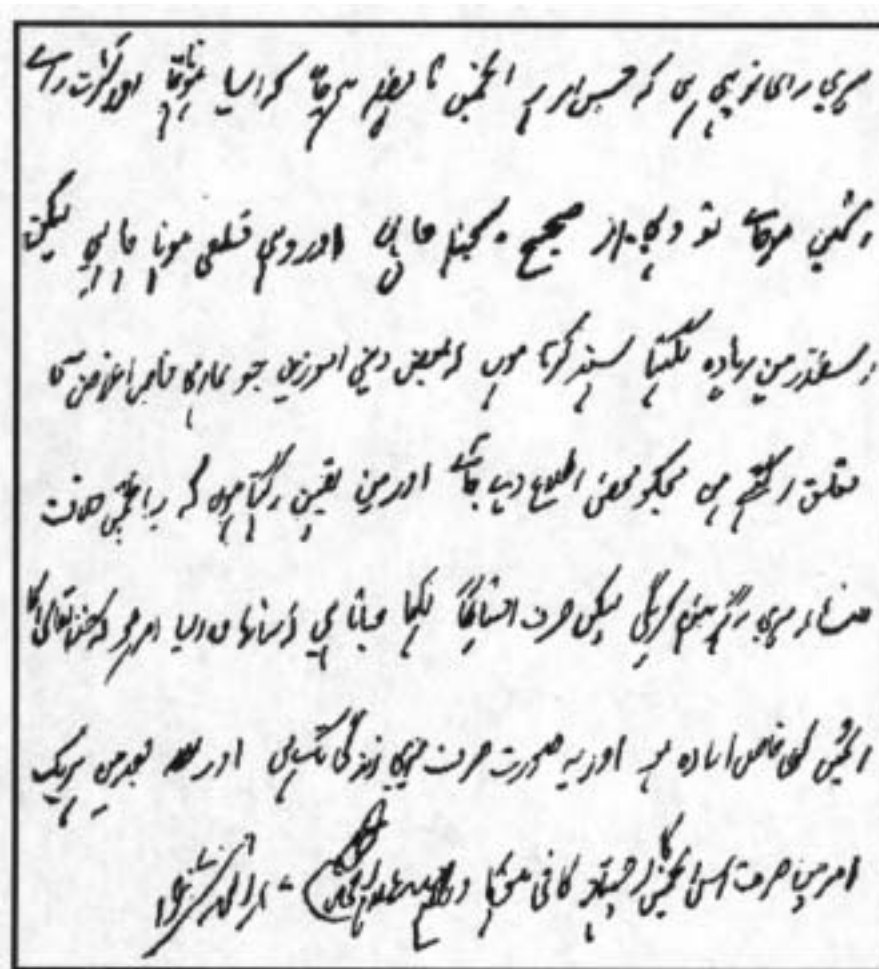 میری رای تو یہی ہی کہ جس امر پر انجمن کا فیصلہ ہو جائے کہ ایسا ہونا چاہئے اور کثرت رائے
اسمیں ہو جائے تو وہی امر صحیح سمجھنا چاہیئے اور وہی قطعی ہونا چاہیئے لیکن
اسقدر میں زیادہ لکھنا پسند کرتا ہوں کہ بعض دینی امور میں جو ہماری خاص اغراض سے
تعلق رکھتے ہیں مجکو محض اطلاع دی جائے اور میں یقین رکھتا ہوں کہ یہ انجمن خلاف
منشاء میری ہرگز نہیں کریگی لیکن صرف احتیاطاً لکھا جاتا ہے کہ شاید وہ ایسا امر ہو کہ خدا تعالیٰ کا
اسمیں کوئی خاص ارادہ ہو اور یہ صورت صرف میری زندگی تک ہی اور بعد میں ہر ایک
امر میں صرف اس انجمن کا اجتہاد کافی ہوگا والسلام مرزا غلام احمد ۲۷ اکتوبر